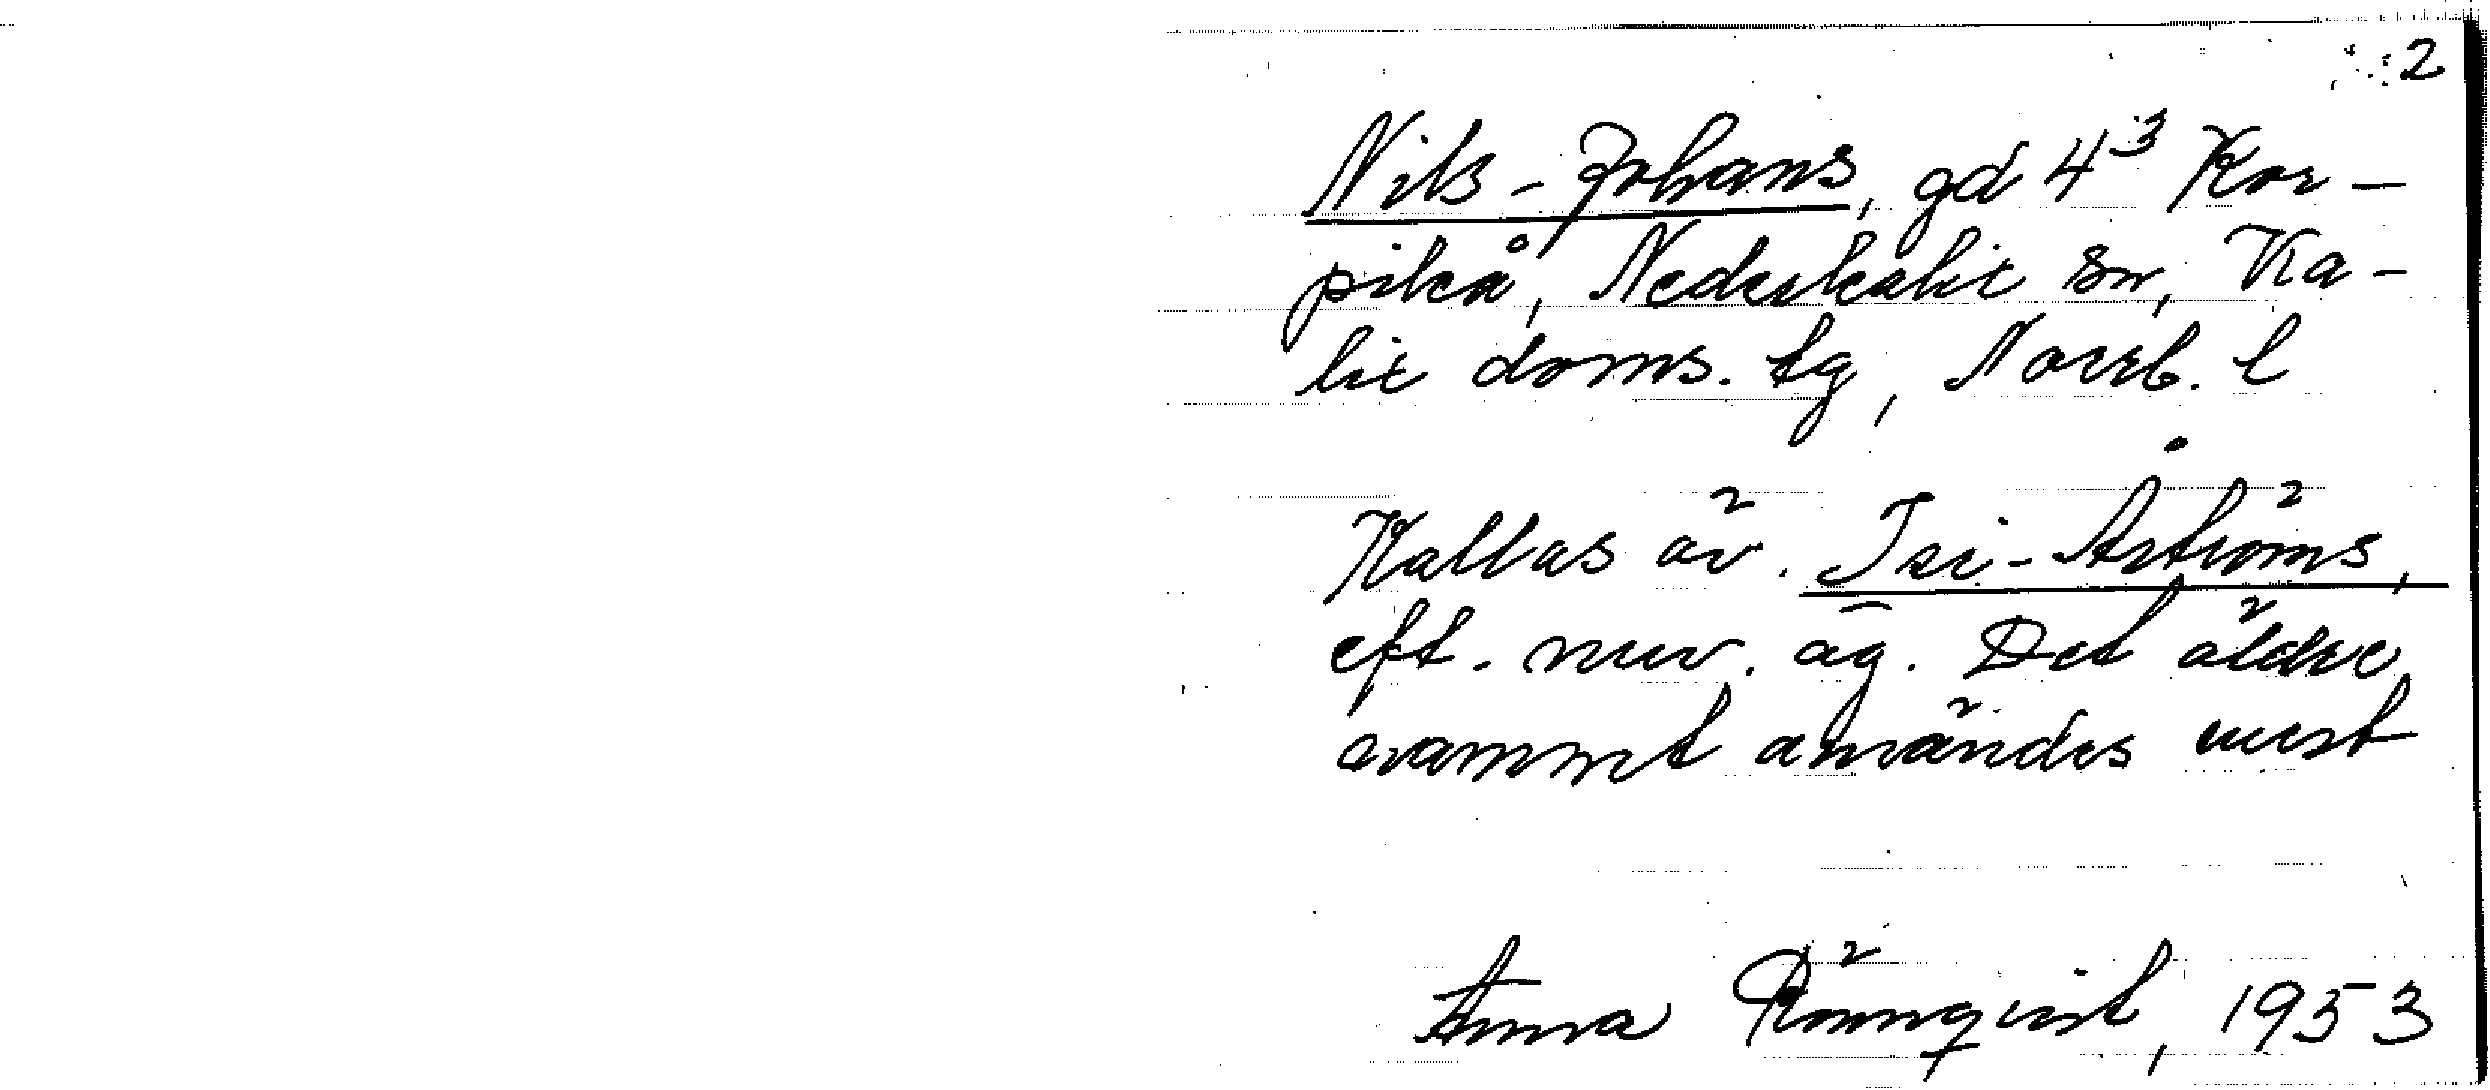 2
Nils-Johans, gd 4³ Kor-
pikå, Nederkalix sn, Ka-
lix doms. tg, Norrb. l
Kallas äv. Isi-Åströms,
eft. nuv. äg. Det äldre
namnet användes mest
Anna Rönnqvist, 1953